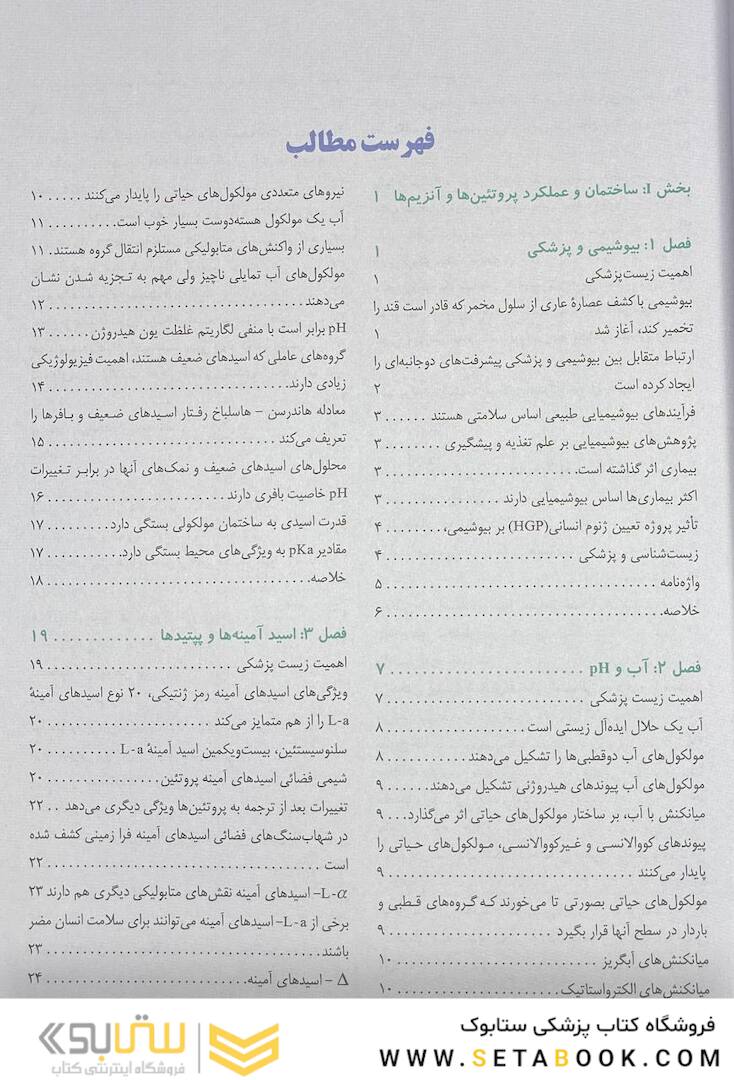 فهرست مطالب
بخش I: ساختمان و عملکرد پروتئین‌ها و آنزیم‌ها ۱
فصل ۱: بیوشیمی و پزشکی ۱
اهمیت زیست‌پزشکی ۱
بیوشیمی با کشف عصارهٔ عاری از سلول مخمر که قادر است قند را
تخمیر کند، آغاز شد ۱
ارتباط متقابل بین بیوشیمی و پزشکی پیشرفت‌های دوجانبه‌ای را
ایجاد کرده است ۲
فرآیندهای بیوشیمیایی طبیعی اساس سلامتی هستند . . . . . . ۳
پژوهش‌های بیوشیمیایی بر علم تغذیه و پیشگیری . . . . . . . . ۳
بیماری اثر گذاشته است. . . . . . . . . . . . . . . . . . . . . . . . . . ۳
اکثر بیماری‌ها اساس بیوشیمیایی دارند . . . . . . . . . . . . . . . ۳
تأثیر پروژه تعیین ژنوم انسانی(HGP) بر بیوشیمی، . . . . . . . . ۴
زیست‌شناسی و پزشکی . . . . . . . . . . . . . . . . . . . . . . . . . ۴
واژه‌نامه . . . . . . . . . . . . . . . . . . . . . . . . . . . . . . . . . . . ۵
خلاصه. . . . . . . . . . . . . . . . . . . . . . . . . . . . . . . . . . . . . ۶
فصل ۲: آب و pH . . . . . . . . . . . . . . . . . . . . . . . . . ۷
اهمیت زیست پزشکی . . . . . . . . . . . . . . . . . . . . . . . . . . ۷
آب یک حلال ایده‌آل زیستی است . . . . . . . . . . . . . . . . . . . ۸
مولکول‌های آب دوقطبی‌ها را تشکیل می‌دهند . . . . . . . . . . . ۸
مولکول‌های آب پیوندهای هیدروژنی تشکیل می‌دهند. . . . . . ۹
میانکنش با آب، بر ساختار مولکول‌های حیاتی اثر می‌گذارد. . . ۹
پیوندهای کووالانسی و غیرکووالانسی، مـولکول‌های حیاتی را
پایدار می‌کنند . . . . . . . . . . . . . . . . . . . . . . . . . . . . . . . . ۹
مولکول‌های حیاتی بصورتی تا می‌خورند کـه گـروه‌های قـطبی و
باردار در سطح آنها قرار بگیرد . . . . . . . . . . . . . . . . . . . . . . ۹
میانکنش‌های آبگریز . . . . . . . . . . . . . . . . . . . . . . . . . . . ۱۰
میانکنش‌های الکترواستاتیک. . . . . . . . . . . . . . . . . . . . . . ۱۰
نیروهای متعددی مولکول‌های حیاتی را پایدار می‌کنند . . . . . ۱۰
آب یک مولکول هسته‌دوست بسیار خوب است. . . . . . . . . . ۱۱
بسیاری از واکنش‌های متابولیکی مستلزم انتقال گروه هستند. ۱۱
مولکول‌های آب تمایلی ناچیز ولی مهم به تـجزیه شـدن نشـان
می‌دهند . . . . . . . . . . . . . . . . . . . . . . . . . . . . . . . . . . . ۱۲
pH برابر است با منفی لگاریتم غلظت یون هیدروژن. . . . . . ۱۳
گروه‌های عاملی که اسیدهای ضعیف هستند، اهمیت فیزیولوژیکی
زیادی دارند. . . . . . . . . . . . . . . . . . . . . . . . . . . . . . . . . . ۱۴
معادله هاندرسن – هاسلباخ رفـتار اسـیدهای ضـعیف و بـافرها را
تعریف می‌کند . . . . . . . . . . . . . . . . . . . . . . . . . . . . . . . ۱۵
محلول‌های اسیدهای ضعیف و نمک‌های آنها در برابـر تـغییرات
pH خاصیت بافری دارند . . . . . . . . . . . . . . . . . . . . . . . . ۱۶
قدرت اسیدی به ساختمان مولکولی بستگی دارد. . . . . . . . . ۱۷
مقادیر pKa به ویژگی‌های محیط بستگی دارد. . . . . . . . . . . ۱۷
خلاصه. . . . . . . . . . . . . . . . . . . . . . . . . . . . . . . . . . . . ۱۸
فصل ۳: اسید آمینه‌ها و پپتیدها . . . . . . . . . . . . . ۱۹
اهمیت زیست پزشکی . . . . . . . . . . . . . . . . . . . . . . . . . ۱۹
ویژگی‌های اسیدهای آمینه رمز ژنتیکی، ۲۰ نوع اسیدهای آمینهٔ
L-a را از هم متمایز می‌کند . . . . . . . . . . . . . . . . . . . . . . ۲۰
سلنوسیستئین، بیست‌ویکمین اسید آمینهٔ L-a . . . . . . . . . . ۲۰
شیمی فضائی اسیدهای آمینه پروتئین. . . . . . . . . . . . . . . . ۲۰
تغییرات بعد از ترجمه به پروتئین‌ها ویژگی دیگری می‌دهد . . ۲۲
در شهاب‌سنگ‌های فضائی اسیدهای آمینه فرا زمینی کشف شده
است . . . . . . . . . . . . . . . . . . . . . . . . . . . . . . . . . . . . . ۲۲
L-α– اسیدهای آمینه نقش‌های متابولیکی دیگری هم دارند ۲۳
برخی از L-a– اسیدهای آمینه می‌توانند برای سلامت انسان مضر
باشند. . . . . . . . . . . . . . . . . . . . . . . . . . . . . . . . . . . . . ۲۳
Δ – اسیدهای آمینه. . . . . . . . . . . . . . . . . . . . . . . . . . . . ۲۴
فروشگاه کتاب پزشکی ستابوک
WWW.SETABOOK.COM
ستابوک
فروشگاه اینترنتی کتاب